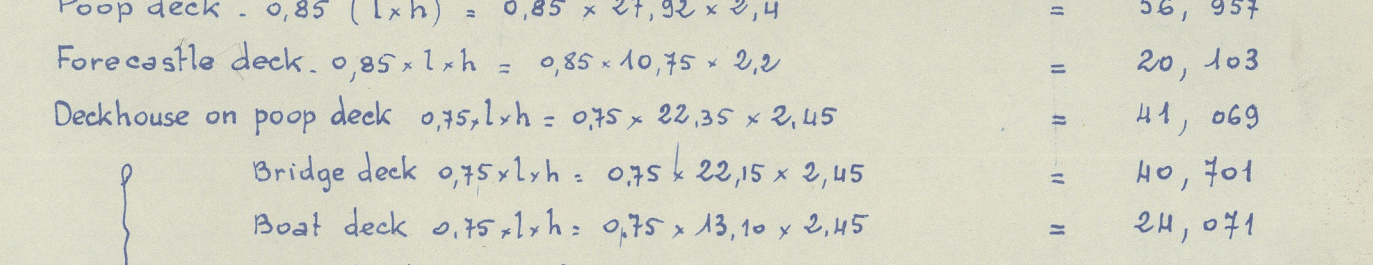 Poop deck. 0,85 (l×h) = 0,85 × 27,92 × 2,4 = 56, 957
Forecastle deck. 0,85×l×h = 0,85×10,75 × 2,2 = 20, 103
Deckhouse on poop deck 0,75×l×h = 0,75 × 22,35 × 2,45 = 41, 069
Bridge deck 0,75×l×h = 0,75 × 22,15 × 2,45 = 40, 701
Boat deck 0,75×l×h = 0,75 × 13,10 × 2,45 = 24, 071